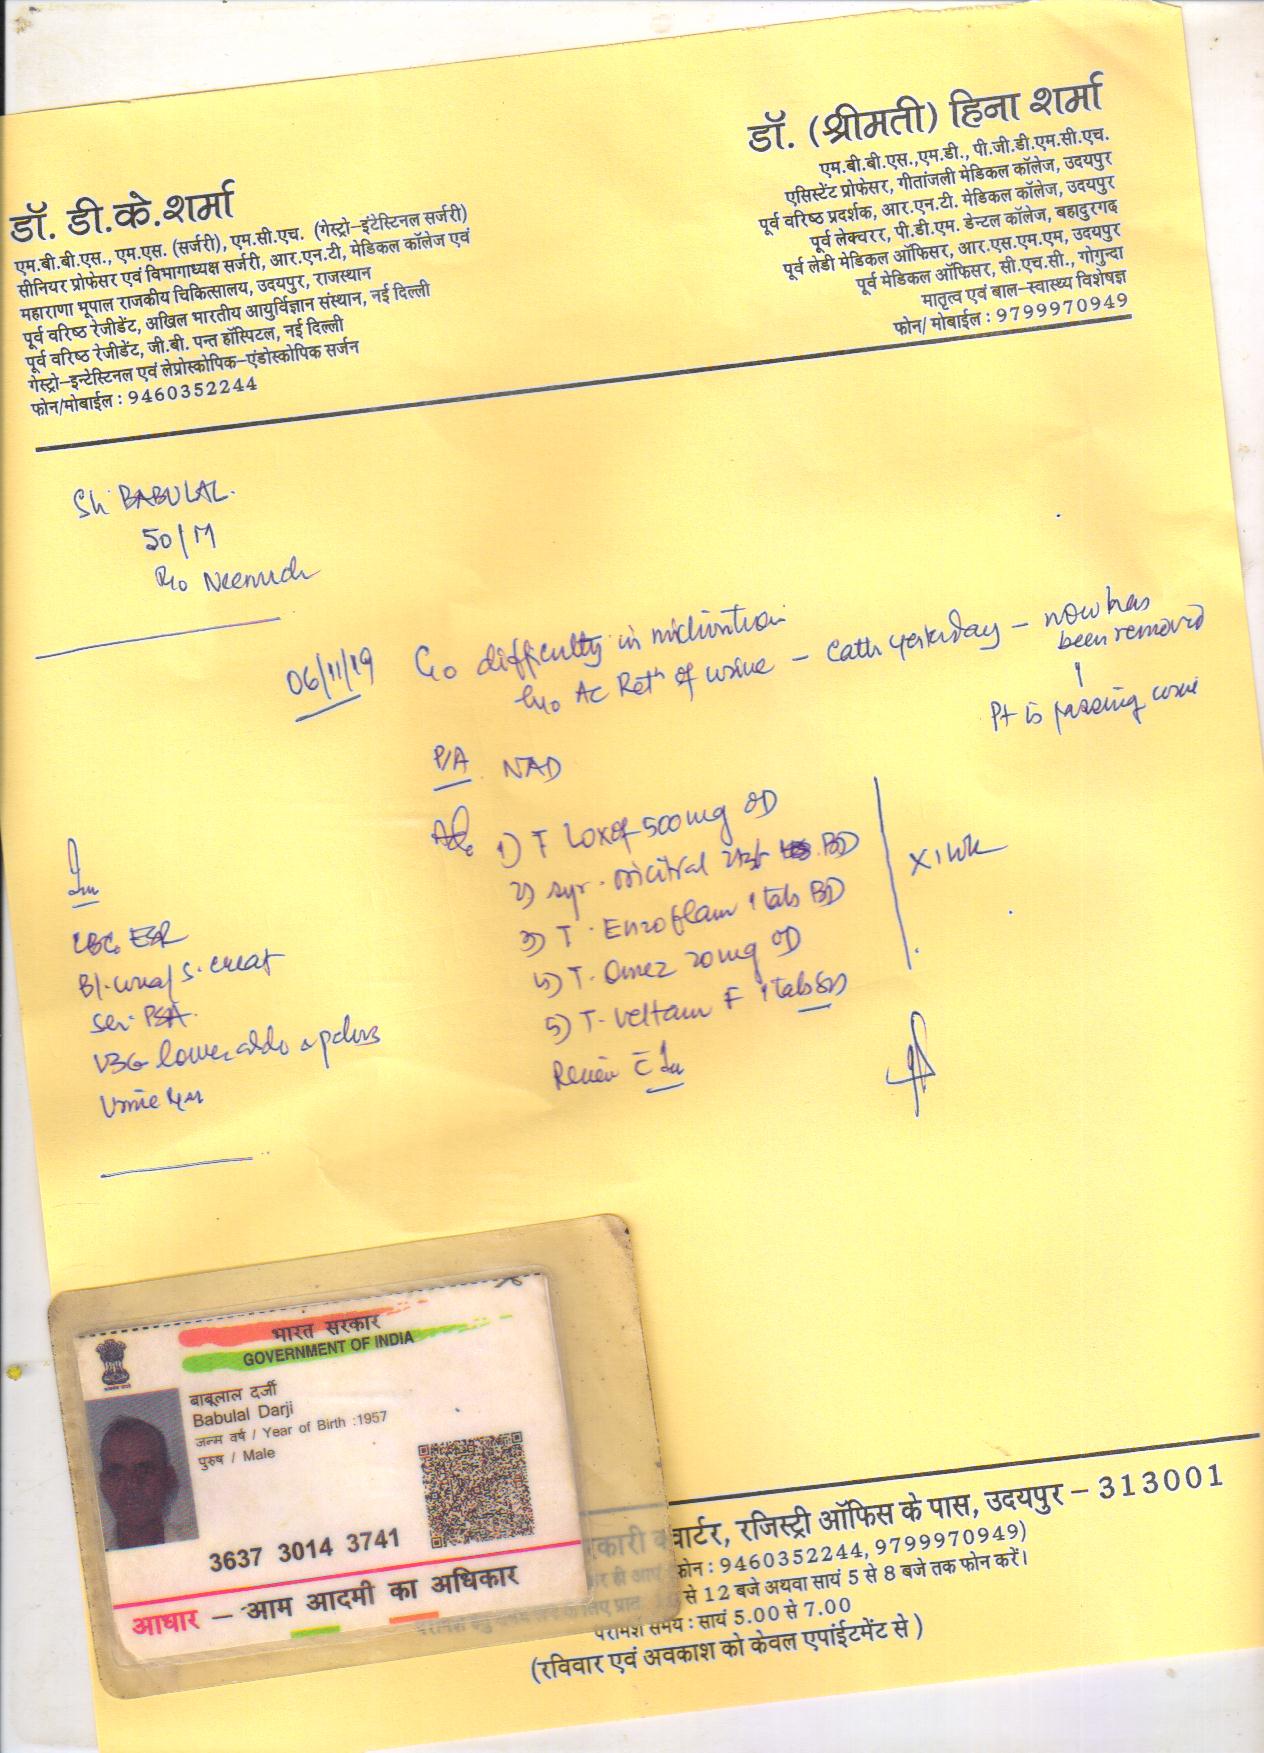 डॉ. डी.के.शर्मा
एम.बी.बी.एस., एम.एस. (सर्जरी), एम.सी.एच. (गेस्ट्रो-इंटेस्टिनल सर्जरी)
सीनियर प्रोफेसर एवं विभागाध्यक्ष सर्जरी, आर.एन.टी. मेडिकल कॉलेज एवं
महाराणा भूपाल राजकीय चिकित्सालय, उदयपुर, राजस्थान
पूर्व वरिष्ठ रेजीडेंट, अखिल भारतीय आयुर्विज्ञान संस्थान, नई दिल्ली
पूर्व वरिष्ठ रेजीडेंट, जी.बी. पन्त हॉस्पिटल, नई दिल्ली
गेस्ट्रो-इन्टेस्टिनल एवं लेप्रोस्कोपिक-एंडोस्कोपिक सर्जन
फोन/मोबाईल : 9460352244
डॉ. (श्रीमती) हिना शर्मा
एम.बी.बी.एस.,एम.डी., पी.जी.डी.एम.सी.एच.
एसिस्टेंट प्रोफेसर, गीतांजली मेडिकल कॉलेज, उदयपुर
पूर्व वरिष्ठ प्रदर्शक, आर.एन.टी. मेडिकल कॉलेज, उदयपुर
पूर्व लेक्चरर, पी.डी.एम. डेन्टल कॉलेज, बहादुरगढ़
पूर्व लेडी मेडिकल ऑफिसर, आर.एस.एम.एम, उदयपुर
पूर्व मेडिकल ऑफिसर, सी.एच.सी., गोगुन्दा
मातृत्व एवं बाल-स्वास्थ्य विशेषज्ञ
फोन/ मोबाईल : 9799970949
Sh. BABULAL.
50/M
R/o Neemuch
06/11/19 C/o difficulty in micturition
H/o Ac Retn of urine - Cath yesterday - now has
been removed
Pt is passing urine
P/A NAD
Adv
1) T Loxof 500mg OD
2) syr. BD
3) T. Enzoflam 1 tab BD
4) T. Omez 20mg OD
5) T. Veltam F 1 tab
X 1 wk
Review c Inv
Inv
CBC ESR
Bl. urea/ S. creat
Ser. PSA.
USG lower abdo & pelvis
Urine
भारत सरकार
GOVERNMENT OF INDIA
बाबूलाल दर्जी
Babulal Darji
जन्म वर्ष / Year of Birth :1957
पुरुष / Male
3637 3014 3741
आधार – आम आदमी का अधिकार
क्वार्टर, रजिस्ट्री ऑफिस के पास, उदयपुर – 313001
फोन : 9460352244, 9799970949)
से 12 बजे अथवा सायं 5 से 8 बजे तक फोन करें।
परामर्श समय : सायं 5.00 से 7.00
(रविवार एवं अवकाश को केवल एपांईटमेंट से )